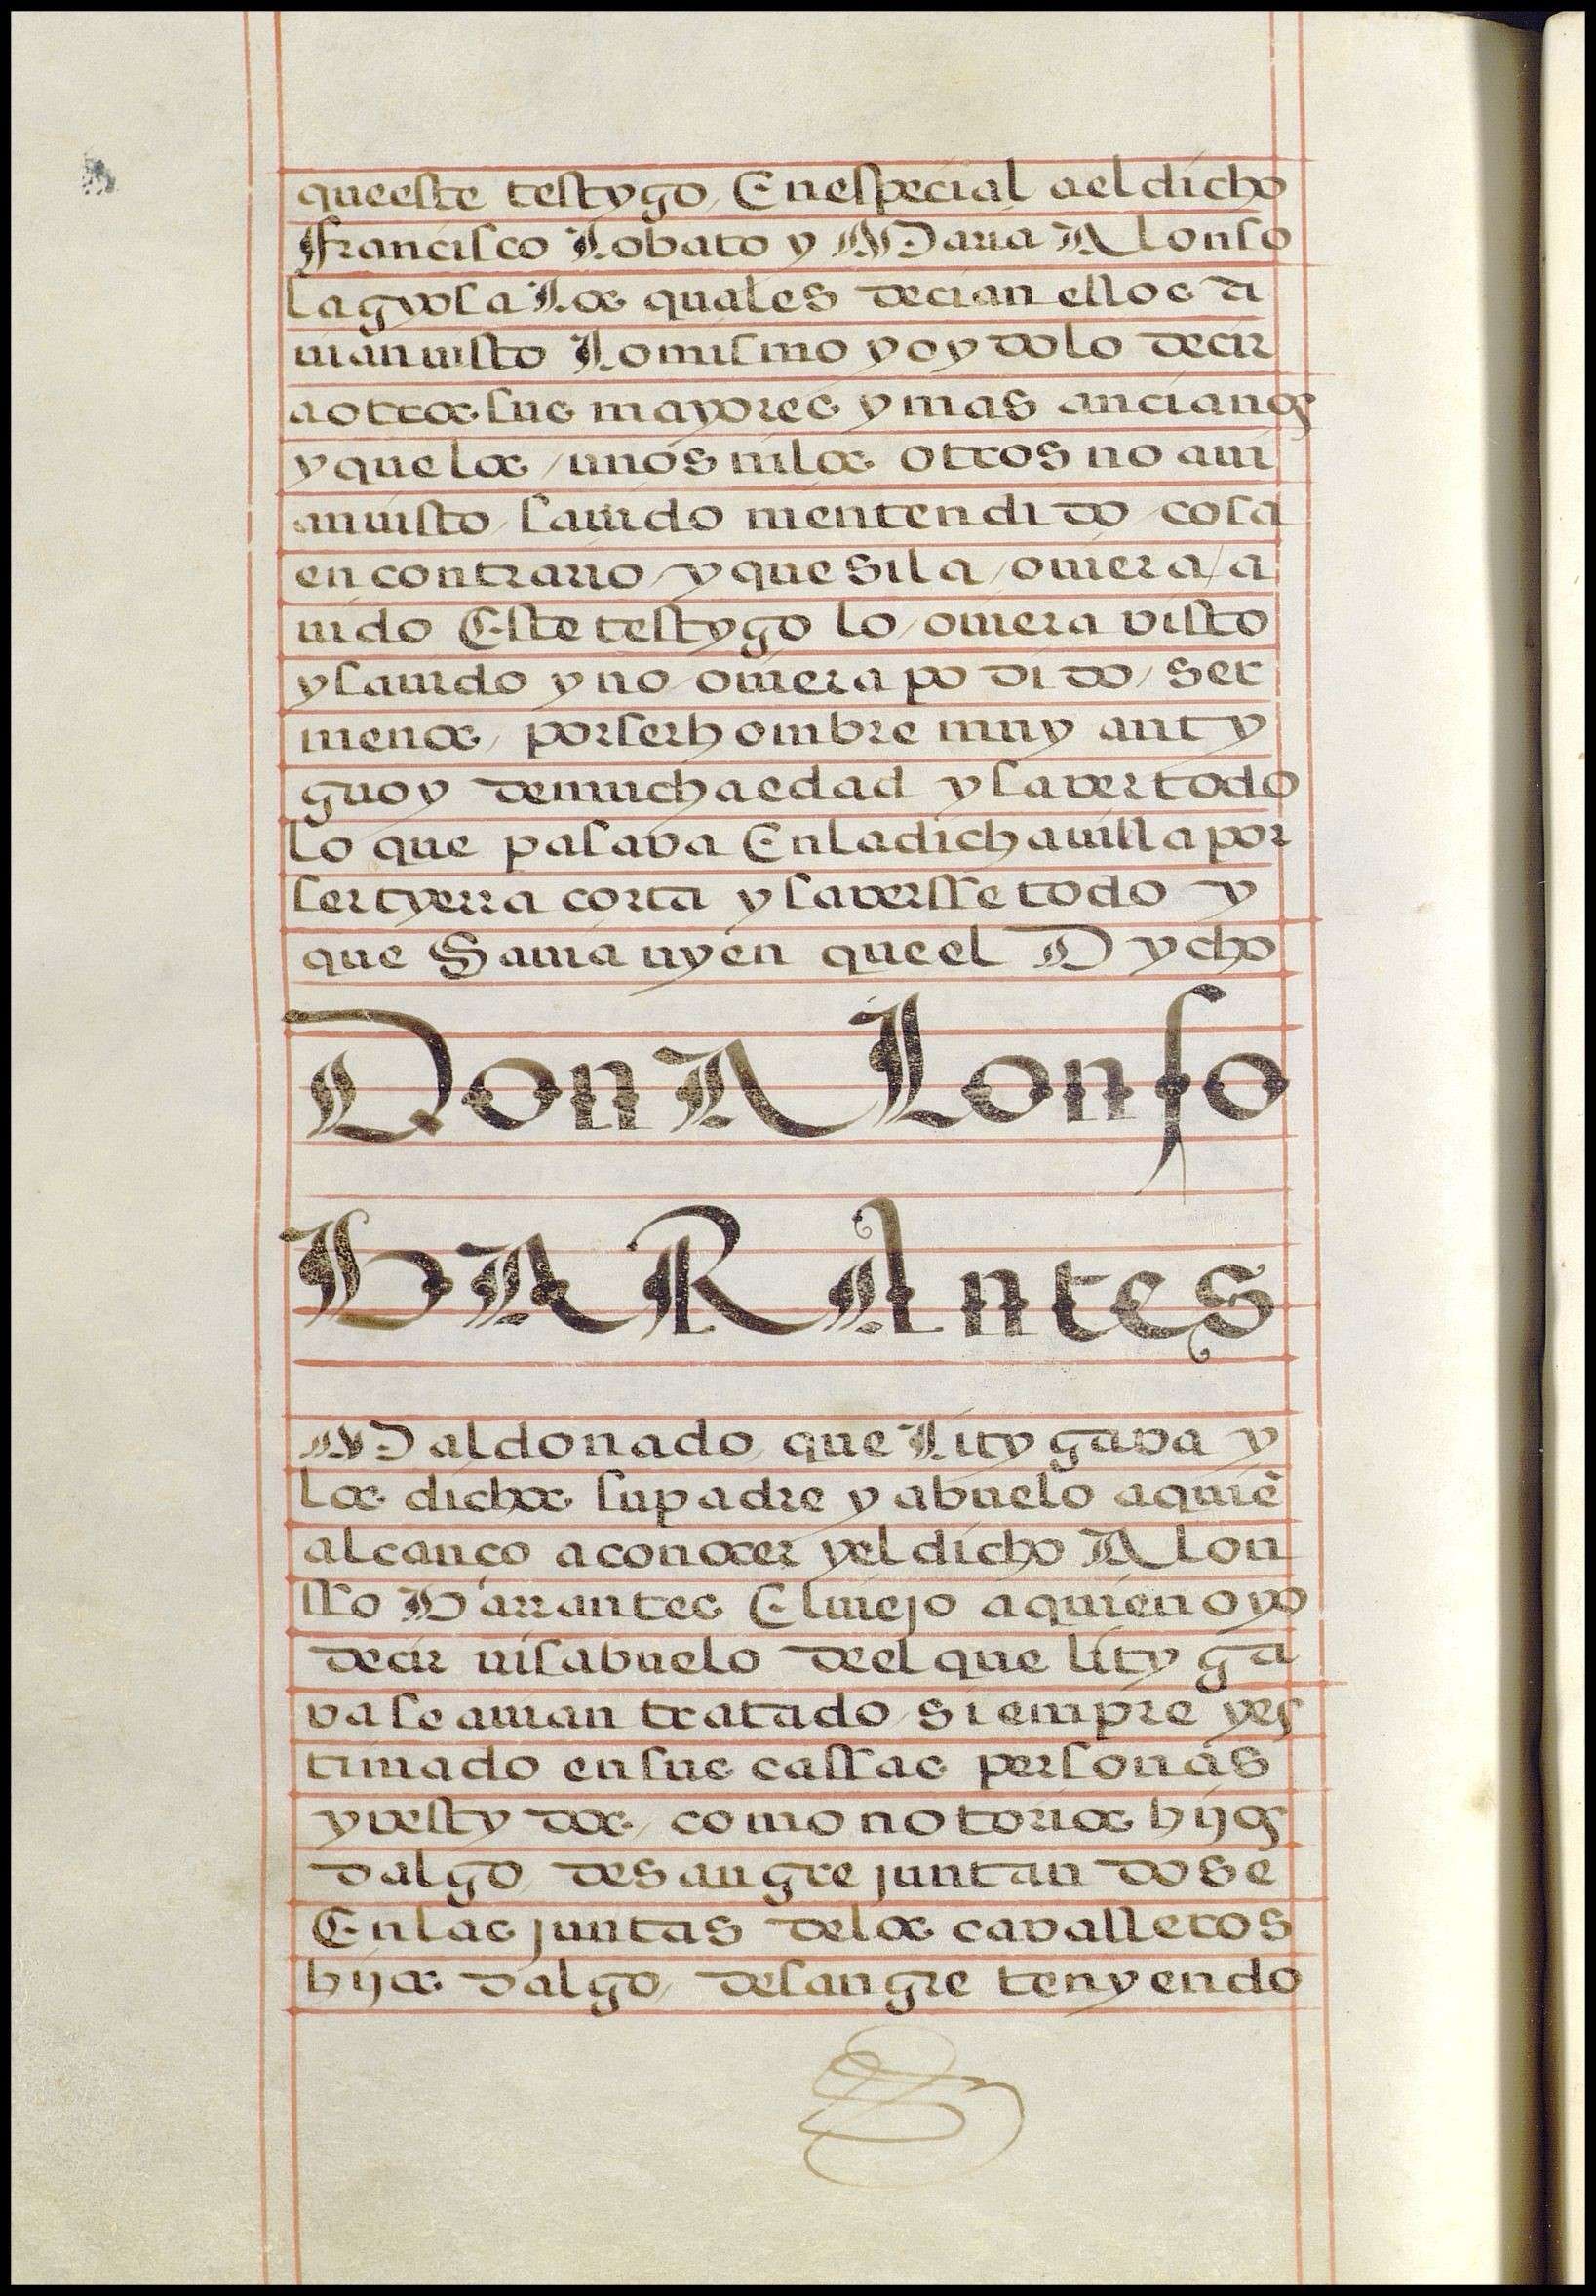 queeste testygo, Enespecial aeldicho
ffrancisco Lobato y Maria Alonso
lagyosa Los quales decian ellos a
uianuisto Lomismo yoydolo decir
aotros sus mayores ymas ancianos
yquelos / unos nilos otros no aui
anuisto / sauido nientendido / cosa
encontrario / yque sila / ouiera / a
uido Este testygo lo / ouiera visto
ysauido yno / ouiera podido / ser
menos, porserhombre muy anty
guoy demuchaedad ysavertodo
lo que pasava Enladichauilla por
sertyerra corta ysaversse todo y
que Sauia uyen queel Dycho
Don ALonso
BARAntes
Maldonado, que Litygava y
los dichos supadre yabuelo aquiē
alcanço aconocer yeldicho Alon
sso Barrantes Eluiejo aquienoyo
decir uisabuelo deel que lityga
vaseauian tratado siempre yes
timado ensus cassas personas
yvestydos, comonotorios hijos
dalgo, desangre juntandose
Enlas juntas delos cavalleros
hijos dalgo, desangre tenyendo